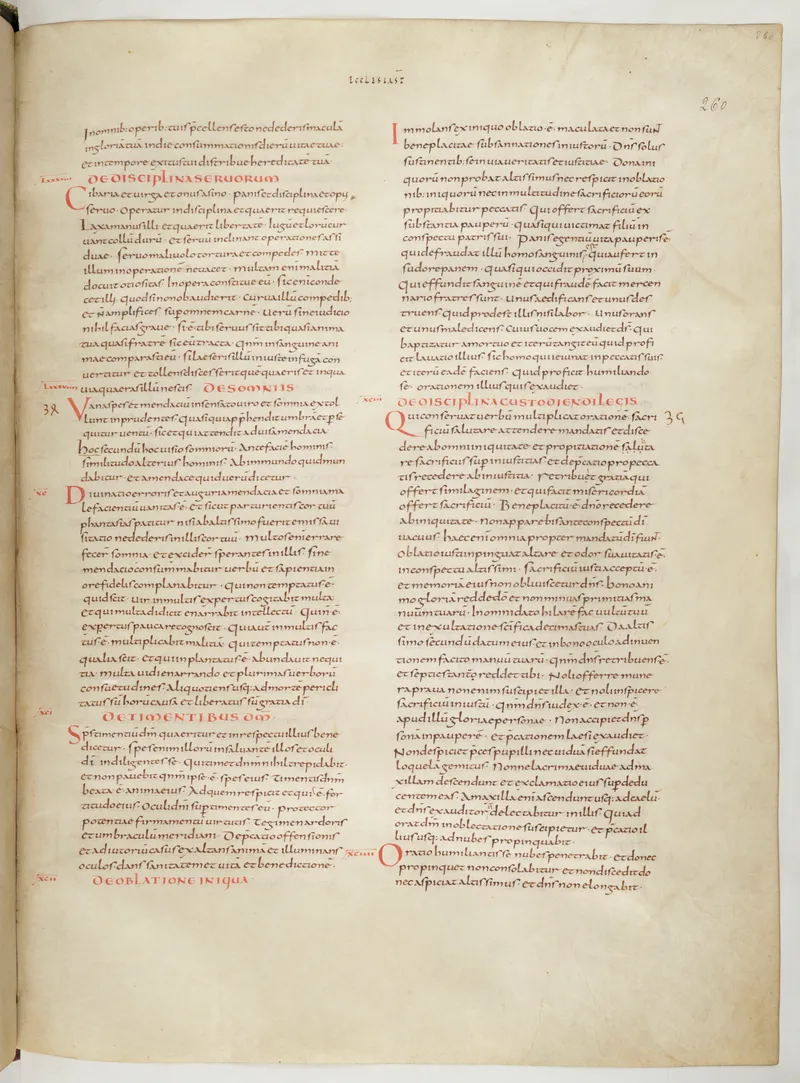 ECCLESIAST̄
260
Inomnib: operib: tuis p̄cellens esto nedederis maculā
ingloriā tuā indie consummationis dierū uitae tuae·
et in tempore exitus tui distribue hereditatē tuā·
lxxxviii DE DISCIPLINA SERUORUM
Cibaria et uirga et onus asino· panis et disciplina et op;
seruo· Operatur in disciplina et quaerit requiescere·
Laxa manus illi et quaerit libertatē· Iugū et lorū cur
uant collū durū· et seruū inclinant operationes assi
duae· seruo maliuolo tortura et compedes· mitte
illum in operationē ne uacet· multam enim malitiā
docuit otiositas· In opera constitue eū· sic enī conde
cet illū quod si non obaudierit· Curua illū compedib;
et n̄ amplifices sup omnem carnē· Uerū sine iudicio
nihil facias graue· si ē tibi seruus sit tibi quasi anima
tua quasi fratrē sic eū tracta· qnm̄ in sanguine ani
mae comparasti eū· si laeseris illū iniuste in fugā con
uertetur· et tollens discesserit quē quaeris et in qua
uia quaeras illū nescis·
lxxxviiii DE SOMNIIS
38
Uana spes et mendaciū insensato uiro et somnia extol
lunt inprudentes· quasi qui app̄hendit umbrā et p̄se
quitur uentū· sic et qui attendit ad uisa mendacia·
hoc secundū hoc uisio somniorū· Ante faciē hominis
similitudo alterius hominis· Ab inmundo quid mun
dabitur· et a mendace quid uerū dicetur·
xc Diuinatio erroris et auguria mendacia et somnia ma
lefacientiū uanitas ē· et sicut parturientis cor tuū
phantasias patitur nisi ab altissimo fuerit emissa ui
sitatio ne dederis in illis cor tuū· multos enī errare
fecer̄ somnia· et excider̄ sperantes in illis· sine
mendacio consūmabitur uerbū et sapientia in
ore fidelis complanabitur· qui non temptatus ē·
quid scit· uir in multis expertus cogitabit multa·
et qui multa didicit enarrabit intellectū· qui n̄ ē
expertus pauca recognoscit· qui autē in multis fac
tus ē· multiplicabit malitiā· qui temptatus non ē·
qualia scit· et qui implantatus ē· abundauit nequi
tia· multa uidi enarrando et plurimas uerborū
consuetudines· Aliquotiens usq; ad mortē pericli
tatus sū horū causa et liberatus sū gratia dī
xci DE TIMENTIBUS DM̄
Sp̄s timentiū dm̄ quaeritur et in respectu illius bene
dicetur· spes enim illorū in saluantē illos et oculi
dī in diligentes sē· qui timet dnm̄ nihil trepidabit·
et non pauebit qnm̄ ipse ē· spes eius· Timentis dnm̄
beata ē· anima eius· Ad quem respicit et quis ē· for
titudo eius· Oculi dnī sup timentes eū· protector
potentiae firmamentū uirtutis· Tegimen ardoris
et umbraculū meridiani· Dep̄catio offensionis
et adiutoriū casus· exaltans animā et illuminans
oculos· dans sanitatem et uitā et benedictionē·
xcii DE OBLATIONE INIQUA
Immolans ex iniquo oblatio ē· maculata et non sunt
beneplacitae subsannationes iniustorū· Dns̄ solus
sustinentib: se in uia ueritatis et iustitiae· Dona ini
quorū non probat altissimus nec respicit in oblatio
nib: iniquorū nec in multitudine sacrificiorū eorū
propitiabitur peccatis· Qui offert sacrificiū ex
substantia pauperū· quasi qui uictimat filiū in
conspectu patris sui· Panis egentiū uita pauperis ē·
qui defraudat illū homo sanguinis· qui aufert in
sudore panem· quasi qui occidit proximū suum·
Qui effundit sanguinē et qui fraudē facit mercen
nario fratres sunt· Unus aedificans et unus des
truens quid prodest illis nisi labor· Unus orans
et unus maledicens· Cuius uocem exaudiet ds̄· qui
baptizatur a mortuo et iterū tangit eū quid profi
cit lauatio illius· sic homo qui ieiunat in peccatis suis·
et iterū eadē faciens· quid proficit humiliando
sē· orationem illius quis exaudiet·
xciii DE CUSTODIENDO LEGIS
39
Qui conseruat uerbū multiplicat orationē· sacri
ficiū salutare attendere mandatis et disce
dere ab omni iniquitate· et propitiationē saluta
re sacrificii sup iniustitias· et dep̄catio pro pecca
tis recedere ab iniustitia· retribuet gratiā qui
offert similaginem· et qui facit misericordiā
offert sacrificiū· Beneplacitū ē· dno recedere
ab iniquitate· Non apparebis ante conspectū dī
uacuus· haec enī omnia propter mandatū dī fiunt·
Oblatio iusti inpinguat altare· et odor suauitatis ē·
in conspectu altissimi· sacrificiū iusti acceptū ē·
et memoriā eius non obliuiscetur dns̄· bono ani
mo gloriā redde dō· et non minuas primitias ma
nuū tuarū· In omni dato hilarē fac uultū tuū
et in exultatione scīfica decimas tuas· Da altis
simo secundū datum eius· et in bono oculo ad inuen
tionem facito manuū tuarū· qnm̄ dns̄ retribuens ē·
et septies tantū reddet tibi· Noli offerre mune
ra praua non enim suscipiet illa· et noli inspicere
sacrificiū iniustū· qnm̄ dns̄ iudex ē· et non ē·
apud illū gloria personae· Non accipiet dns̄ p
sonā in pauperē· et p̄cationem laesi exaudiet·
Non despiciet p̄ces pupilli nec uiduā si effundat
loquelā gemitus· Nonne lacrimae uiduae ad ma
xillam descendunt et exclamatio eius sup dedu
centem eas· A maxilla enī ascendunt usq; ad caelū·
et dns̄ exauditor n̄ delectabitur in illis· qui ad
orat dm̄ in oblectatione suscipietur· et p̄catio il
lius usq; ad nubes propinquabit·
xciiii Oratio humiliantis sē nubes penetrabit· et donec
propinquet non consolabitur· et non discedit do
nec aspiciat altissimus· et dns̄ non elongabit·